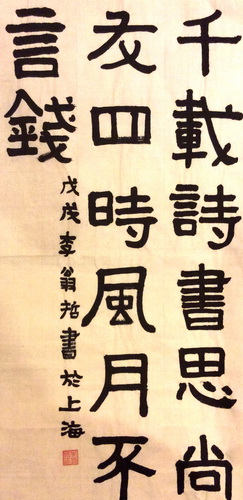 千載詩書思尚
友四時風月不
言錢
戊戌李翁哲書於上海